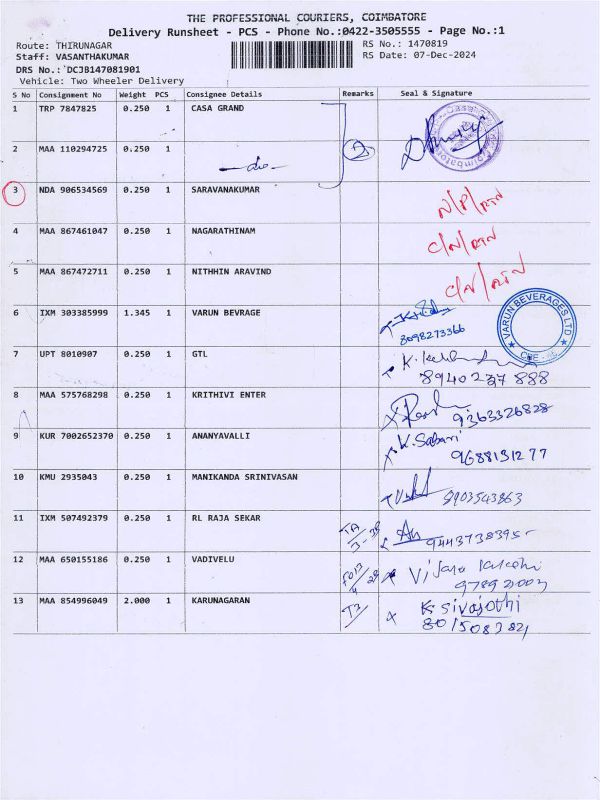 THE PROFESSIONAL COURIERS, COIMBATORE
Delivery Runsheet - PCS - Phone No.:0422-3505555 - Page No.:1
Route: THIRUNAGAR RS No.: 1470819
Staff: VASANTHAKUMAR RS Date: 07-Dec-2024
DRS No.: DCJB147081901
Vehicle: Two Wheeler Delivery
S No Consignment No Weight PCS Consignee Details Remarks Seal & Signature
1 TRP 7847825 0.250 1 CASA GRAND
2 MAA 110294725 0.250 1 —do— 2
3 NDA 906534569 0.250 1 SARAVANAKUMAR N/P/RTN
4 MAA 867461047 0.250 1 NAGARATHINAM C/N/RTN
5 MAA 867472711 0.250 1 NITHHIN ARAVIND C/N/RTN
6 IXM 303385999 1.345 1 VARUN BEVRAGE
8098273366
VARUN BEVERAGES LTD
7 UPT 8010907 0.250 1 GTL K.
8940237888
8 MAA 575768298 0.250 1 KRITHIVI ENTER 9363326828
9 KUR 7002652370 0.250 1 ANANYAVALLI K. Sabari
9688131277
10 KMU 2935043 0.250 1 MANIKANDA SRINIVASAN 8903543863
11 IXM 507492379 0.250 1 RL RAJA SEKAR
12 MAA 650155186 0.250 1 VADIVELU
13 MAA 854996049 2.000 1 KARUNAGARAN K. Sivajothi